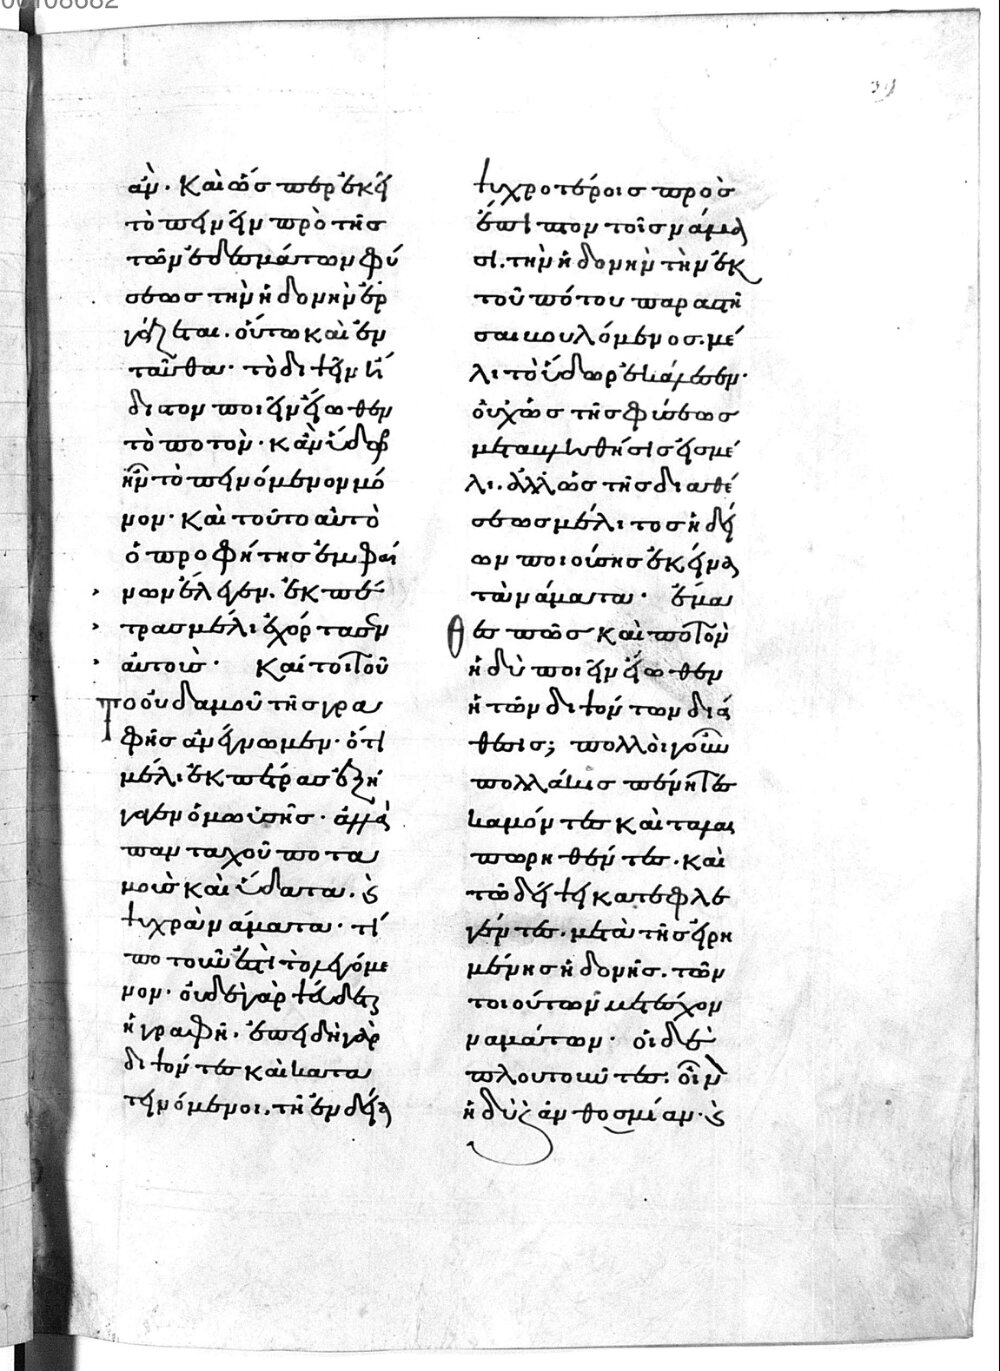 αν. Καὶ ὥσπερ ἐκεῖ
τὸ πεινῆν πρὸ τῆς
τῶν ἐδεσμάτων φύ
σεως τὴν ἡδονὴν ἐρ
γάζεται. οὕτω καὶ ἐν
ταῦθα· τὸ διψῆν ἥ
διστον ποιεῖν εἴωθεν
τὸ ποτὸν· κἂν ὕδωρ
ἦν τὸ πινόμενον μό
νον· καὶ τοῦτο αὐτὸ
ὁ προφήτης ἐμφαί
νων ἔλεγεν. ἐκ πέ
τρας μέλι ἐχόρτασεν
αὐτοὺς· Καίτοι τοῦ
το οὐδαμοῦ τῆς γρα
φῆς ἀνέγνωμεν· ὅτι
μέλι ἐκ πέτρας ἐξή
γαγεν ὁ μωϋσῆς· ἀλλὰ
πανταχοῦ ποτα
μοὺς καὶ ὕδατα. καὶ
ψυχρὰ νάματα· τί
ποτ' οὖν ἐστὶ τὸ λεγόμε
νον· οὐδὲ γὰρ ψεύδεται
ἡ γραφή. ἐπειδὴ γὰρ
διψῶντες καὶ κατα
τεινόμενοι. τῇ ἐνδείᾳ
ψυχροτέροις προσ
έπιπτον τοῖς νάμα
σι. τὴν ἡδονὴν τὴν ἐκ
τοῦ πότου παραστῆ
σαι βουλόμενος. μέ
λι τὸ ὕδωρ ἐκάλεσεν·
οὐχ ὡς τῆς φύσεως
μεταβληθείσης εἰς μέ
λι. ἀλλ' ὡς τῆς διαθέ
σεως μέλιτος ἡδί
ων ποιούσης ἐκεῖνα
τὰ νάματα· ἔμα
θες πῶς καὶ ποτὸν
ἡδὺ ποιεῖν εἴωθεν
ἡ τῶν διψώντων διά
θεσις; πολλοὶ γοῦν
πολλάκις πένητες
καμόντες καὶ ταλαι
πωρηθέντες. καὶ
τῷ δίψει καταφλε
γέντες. μετὰ τῆς εἰρη
μένης ἡδονῆς. τῶν
τοιούτων μετέσχον
ναμάτων· οἱ δὲ
πλουτοῦντες. οἶνον
ἡδὺν καὶ ἀνθοσμίαν. καὶ